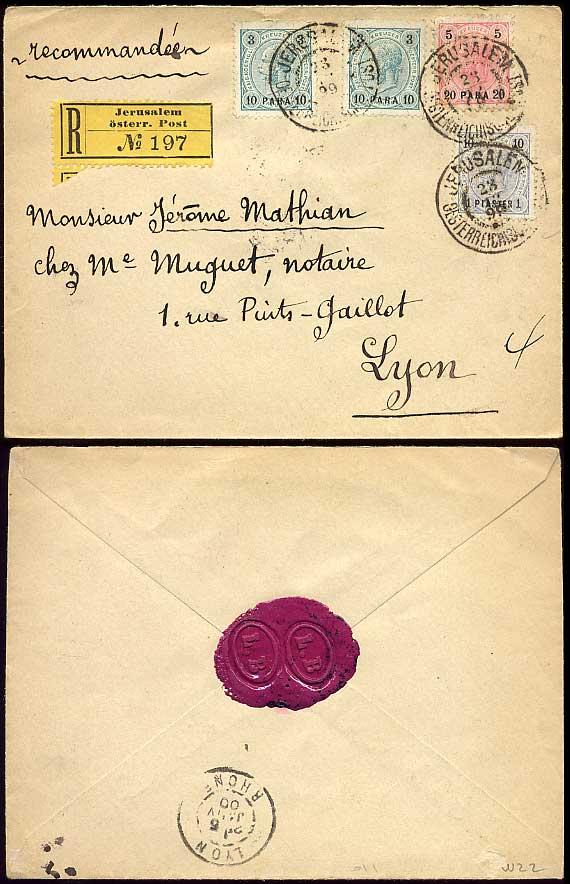 recommandée
3 KREUZER 3
10 PARA 10
3 KREUZER 3
10 PARA 10
5 KREUZER 5
20 PARA 20
10 10
1 PIASTER 1
JERUSALEM
JERUSALEM
23
JERUSALEM
23
R
Jerusalem
österr. Post
No 197
Monsieur Jérôme Mathian
chez Me Muguet, notaire
1. rue Puits-Gaillot
Lyon
4
L.B
L.B
LYON
5
JANV
00
RHONE